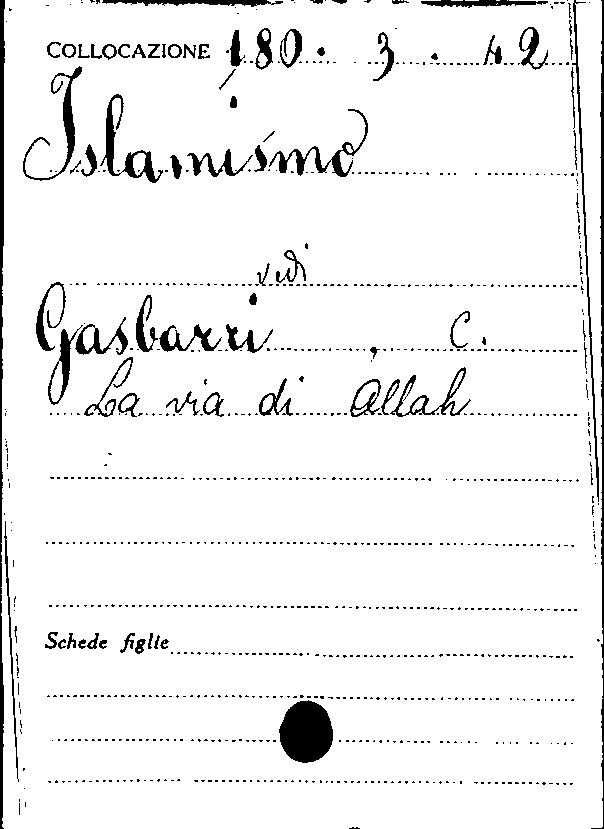 COLLOCAZIONE 180. 3. 42
Islamismo
vedi
Gasbarri, C.
La via di Allah
Schede figlie